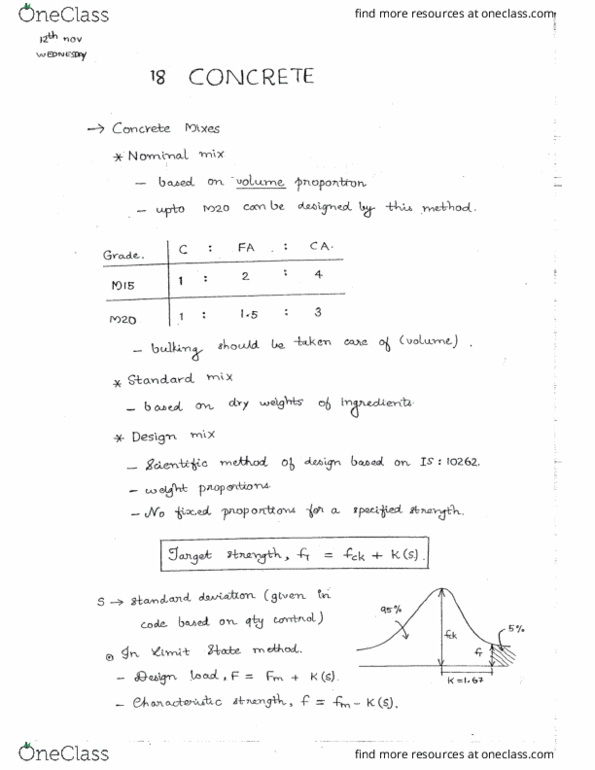 OneClass
find more resources at oneclass.com
12th nov
WEDNESDAY
18 CONCRETE
→ Concrete Mixes
* Nominal mix
- based on volume proportion
- upto M20 can be designed by this method.
Grade. C : FA : CA.
M15 1 : 2 : 4
M20 1 : 1.5 : 3
- bulking should be taken care of (volume).
* Standard mix
- based on dry weights of ingredients.
* Design mix
- Scientific method of design based on IS : 10262.
- weight proportions
- No fixed proportions for a specified strength.
Target strength, fT = fck + K(s).
S → standard deviation (given in
code based on qty control)
In Limit State method.
- Design load, F = Fm + K(s).
- Characteristic strength, f = fm - K(s).
95%
fck
5%
fT
K = 1.67
OneClass
find more resources at oneclass.com